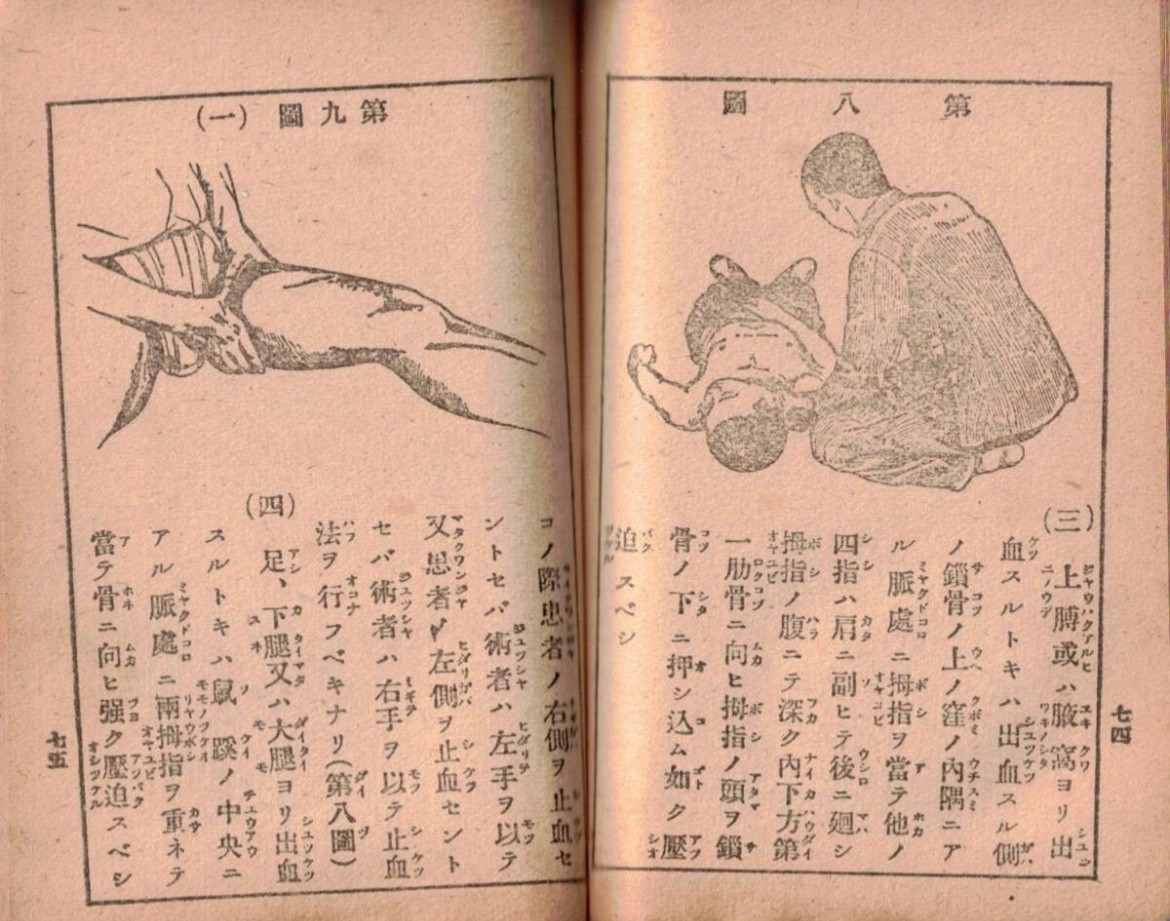 第八圖
(三)
上膊或ハ腋窩ヨリ出
血スルトキハ出血スル側
ノ鎖骨ノ上ノ窪ノ內隅ニア
ル脈處ニ拇指ヲ當テ他ノ
四指ハ肩ニ副ヒテ後ニ廻シ
拇指ノ腹ニテ深ク內下方第
一肋骨ニ向ヒ拇指ノ頭ヲ鎖
骨ノ下ニ押シ込ム如ク壓
迫スベシ
七四
第九圖(一)
コノ際患者ノ右側ヲ止血セ
ントセバ術者ハ左手ヲ以テ
又患者ノ左側ヲ止血セント
セバ術者ハ右手ヲ以テ止血
法ヲ行フベキナリ(第八圖)
(四)
足、下腿又ハ大腿ヨリ出血
スルトキハ鼠蹊ノ中央ニ
アル脈處ニ兩拇指ヲ重ネテ
當テ骨ニ向ヒ强ク壓迫スベシ
七五